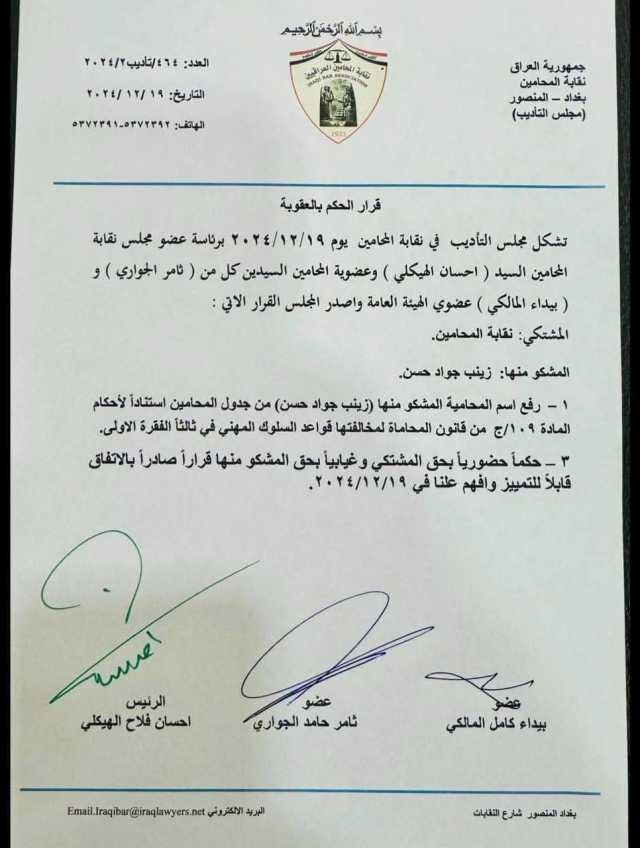 بسم الله الرحمن الرحيم
جمهورية العراق
نقابة المحامين
بغداد – المنصور
(مجلس التأديب)
نقابة المحامين العراقيين
IRAQI BAR ASSOCIATION
1933
العدد: ٤٦٤/تأديب/٢٠٢٤/٢
التاريخ: ١٩ /١٢ /٢٠٢٤
الهاتف: ٥٣٧٢٣٩٢-٥٣٧٢٣٩١
قرار الحكم بالعقوبة
تشكل مجلس التأديب في نقابة المحامين يوم ٢٠٢٤/١٢/١٩ برئاسة عضو مجلس نقابة
المحامين السيد ( احسان الهيكلي ) وعضوية المحامين السيدين كل من ( ثامر الجواري ) و
( بيداء المالكي ) عضوي الهيئة العامة واصدر المجلس القرار الاتي :
المشتكي: نقابة المحامين.
المشكو منها: زينب جواد حسن.
١ – رفع اسم المحامية المشكو منها (زينب جواد حسن) من جدول المحامين استناداً لأحكام
المادة ١٠٩/ج من قانون المحاماة لمخالفتها قواعد السلوك المهني في ثالثاً الفقرة الاولى.
٣ – حكماً حضورياً بحق المشتكي وغيابياً بحق المشكو منها قراراً صادراً بالاتفاق
قابلاً للتمييز وافهم علنا في ٢٠٢٤/١٢/١٩.
عضو
بيداء كامل المالكي
عضو
ثامر حامد الجواري
الرئيس
احسان فلاح الهيكلي
بغداد المنصور شارع النقابات
البريد الالكتروني Email.Iraqibar@iraqlawyers.net